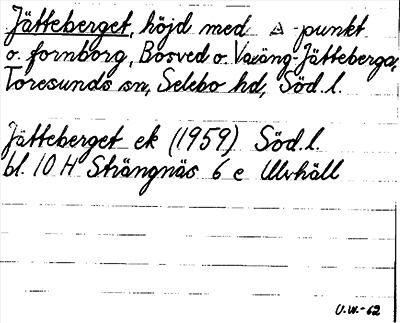 Jätteberget, höjd med △-punkt
o. fornborg, Bosved o. Vaäng-Jätteberga,
Toresunds sn, Selebo hd, Söd. l.
Jätteberget ek (1959) Söd. l.
bl. 10 H Strängnäs 6 e Ulvhäll
U.W.-62